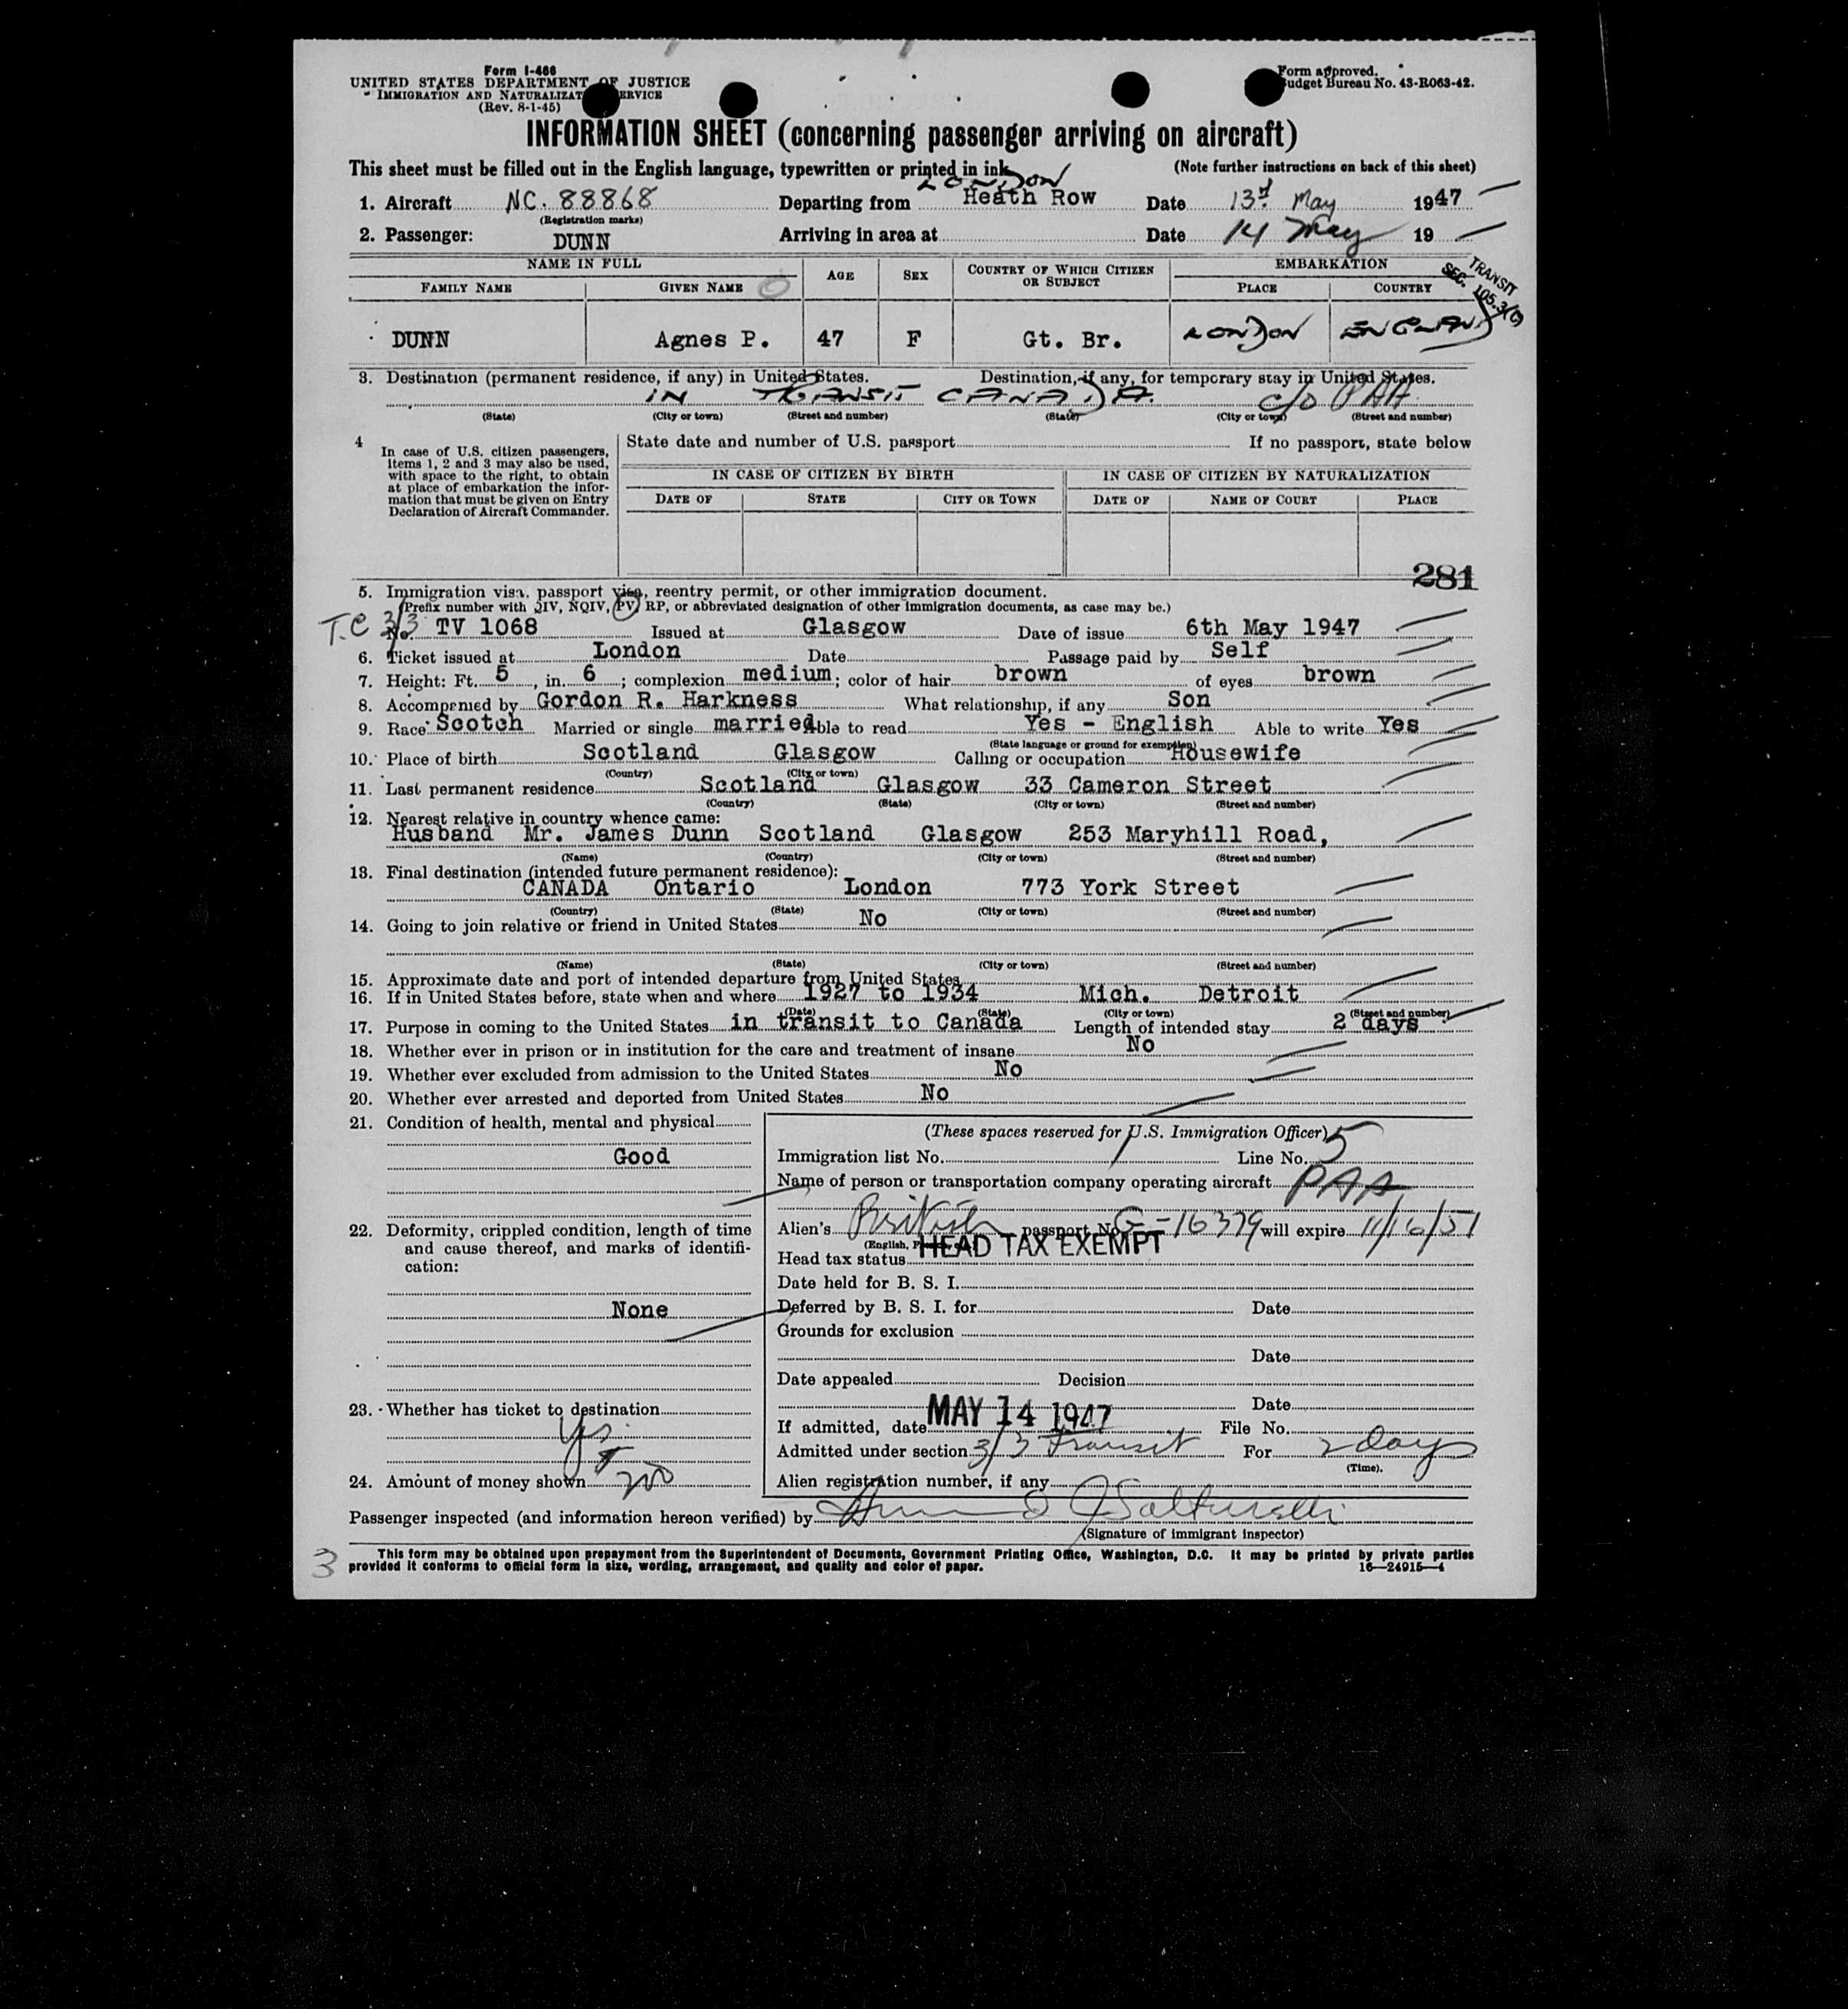 Form I-466
UNITED STATES DEPARTMENT OF JUSTICE
IMMIGRATION AND NATURALIZAT ERVICE
(Rev. 8-1-45)
Form approved.
udget Bureau No. 43-R063-42.
INFORMATION SHEET (concerning passenger arriving on aircraft)
This sheet must be filled out in the English language, typewritten or printed in ink. (Note further instructions on back of this sheet)
LONDON
1. Aircraft NC. 88868 Departing from Heath Row Date 13 May 1947
(Registration marks)
2. Passenger: DUNN Arriving in area at Date 14 May 19
NAME IN FULL AGE SEX COUNTRY OF WHICH CITIZEN OR SUBJECT EMBARKATION
FAMILY NAME GIVEN NAME PLACE COUNTRY
TRANSIT
SEC. 105.3(
DUNN Agnes P. 47 F Gt. Br. LONDON ENGLAND
3. Destination (permanent residence, if any) in United States. Destination, if any, for temporary stay in United States.
IN TRANSIT CANADA. c/o PAA
(State) (City or town) (Street and number) (State) (City or town) (Street and number)
4 In case of U.S. citizen passengers, items 1, 2 and 3 may also be used, with space to the right, to obtain at place of embarkation the information that must be given on Entry Declaration of Aircraft Commander.
State date and number of U.S. passport If no passport, state below
IN CASE OF CITIZEN BY BIRTH IN CASE OF CITIZEN BY NATURALIZATION
DATE OF STATE CITY OR TOWN DATE OF NAME OF COURT PLACE
281
5. Immigration visa, passport visa, reentry permit, or other immigration document.
(Prefix number with QIV, NQIV, PV, RP, or abbreviated designation of other immigration documents, as case may be.)
T.C 3/3 No. TV 1068 Issued at Glasgow Date of issue 6th May 1947
6. Ticket issued at London Date Passage paid by Self
7. Height: Ft. 5, in. 6; complexion medium; color of hair brown of eyes brown
8. Accompanied by Gordon R. Harkness What relationship, if any Son
9. Race Scotch Married or single married Able to read Yes - English Able to write Yes
(State language or ground for exemption)
10. Place of birth Scotland Glasgow Calling or occupation Housewife
(Country) (City or town)
11. Last permanent residence Scotland Glasgow 33 Cameron Street
(Country) (State) (City or town) (Street and number)
12. Nearest relative in country whence came:
Husband Mr. James Dunn Scotland Glasgow 253 Maryhill Road,
(Name) (Country) (City or town) (Street and number)
13. Final destination (intended future permanent residence):
CANADA Ontario London 773 York Street
(Country) (State) (City or town) (Street and number)
14. Going to join relative or friend in United States No
(Name) (State) (City or town) (Street and number)
15. Approximate date and port of intended departure from United States
16. If in United States before, state when and where 1927 to 1934 Mich. Detroit
(Date) (State) (City or town) (Street and number)
17. Purpose in coming to the United States in transit to Canada Length of intended stay 2 days
18. Whether ever in prison or in institution for the care and treatment of insane No
19. Whether ever excluded from admission to the United States No
20. Whether ever arrested and deported from United States No
21. Condition of health, mental and physical
Good
22. Deformity, crippled condition, length of time and cause thereof, and marks of identification:
None
23. Whether has ticket to destination
Yes
24. Amount of money shown 200
(These spaces reserved for U.S. Immigration Officer)
Immigration list No. 1 Line No. 5
Name of person or transportation company operating aircraft PAA
Alien's British passport No. G-16379 will expire 11/16/51
(English, F
Head tax status HEAD TAX EXEMPT
Date held for B. S. I.
Deferred by B. S. I. for Date
Grounds for exclusion
Date
Date appealed Decision
Date
If admitted, date MAY 14 1947 File No.
Admitted under section 3/3 Transit For 2 days
(Time).
Alien registration number, if any
Passenger inspected (and information hereon verified) by
(Signature of immigrant inspector)
3
This form may be obtained upon prepayment from the Superintendent of Documents, Government Printing Office, Washington, D.C. It may be printed by private parties
provided it conforms to official form in size, wording, arrangement, and quality and color of paper. 16—24915—4